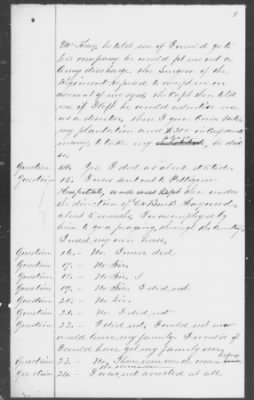 8
Mr Gray he told me if I would go to
his company he would get me out a
Army discharge. The Surgeon of the
Regiment refused to accept me on
account of my eyes, the Capt then told
me if I left he would advertise me
as a deserter, then I gave
my plantation and $200 in
money to take my he did
so.
Question 14. Yes I did as above stated.
Question 15. I was sent to Pettigrew
Hospital, and was kept there under
the direction of Dr Haywood
about 5 months. I was employed by
him to go a foraging through the Country,
I used my own horse,
Question 16. - No. I never did.
Question 17. - No Sir.
Question 18. - No Sir,
Question 19. - No Sir. I did not
Question 20. - No Sir.
Question 21. - No I did not
Question 22. - I did not. I could not
would leave my family. I would if
I could have got my family over,
Question 23. - No,
Question 24. - I was not arrested at all